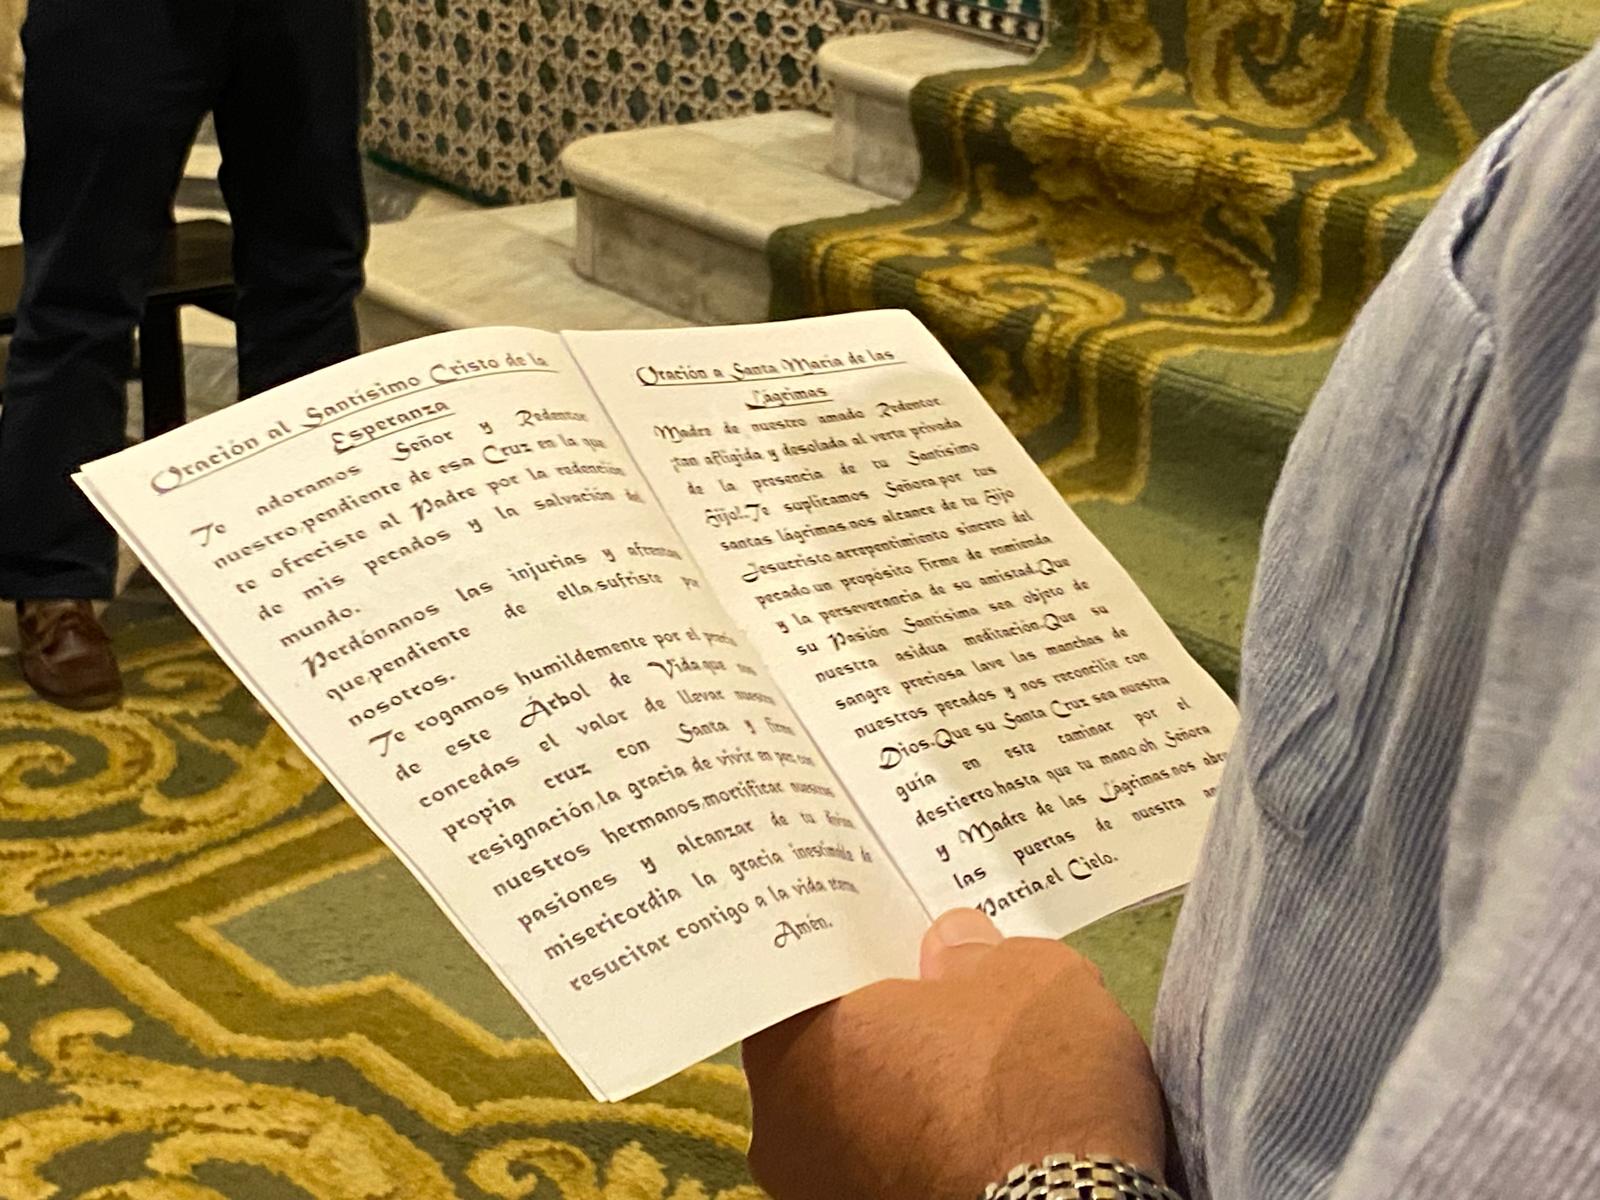 Oración al Santísimo Cristo de la
Esperanza
Te adoramos Señor y Redentor
nuestro,pendiente de esa Cruz en la que
te ofreciste al Padre por la redención
de mis pecados y la salvación del
mundo.
Perdónanos las injurias y afrentas
que,pendiente de ella,sufriste por
nosotros.
Te rogamos humildemente por el precio
de este Árbol de Vida,que nos
concedas el valor de llevar nuestra
propia cruz con Santa y firme
resignación,la gracia de vivir en paz con
nuestros hermanos,mortificar nuestras
pasiones y alcanzar de tu divina
misericordia la gracia inestimable de
resucitar contigo a la vida eterna
Amén.
Oración a Santa Maria de las
Lágrimas
Madre de nuestro amado Redentor
¡tan afligida y desolada al verte privada
de la presencia de tu Santísimo
Hijo!.Te suplicamos Señora,por tus
santas lágrimas,nos alcance de tu Hijo
Jesucristo,arrepentimiento sincero del
pecado,un propósito firme de enmienda
y la perseverancia de su amistad.Que
su Pasión Santísima sea objeto de
nuestra asidua meditación.Que su
sangre preciosa lave las manchas de
nuestros pecados y nos reconcilie con
Dios.Que su Santa Cruz sea nuestra
guía en este caminar por el
destierro,hasta que tu mano,oh Señora
y Madre de las Lágrimas,nos abra
las puertas de nuestra
Patria,el Cielo.